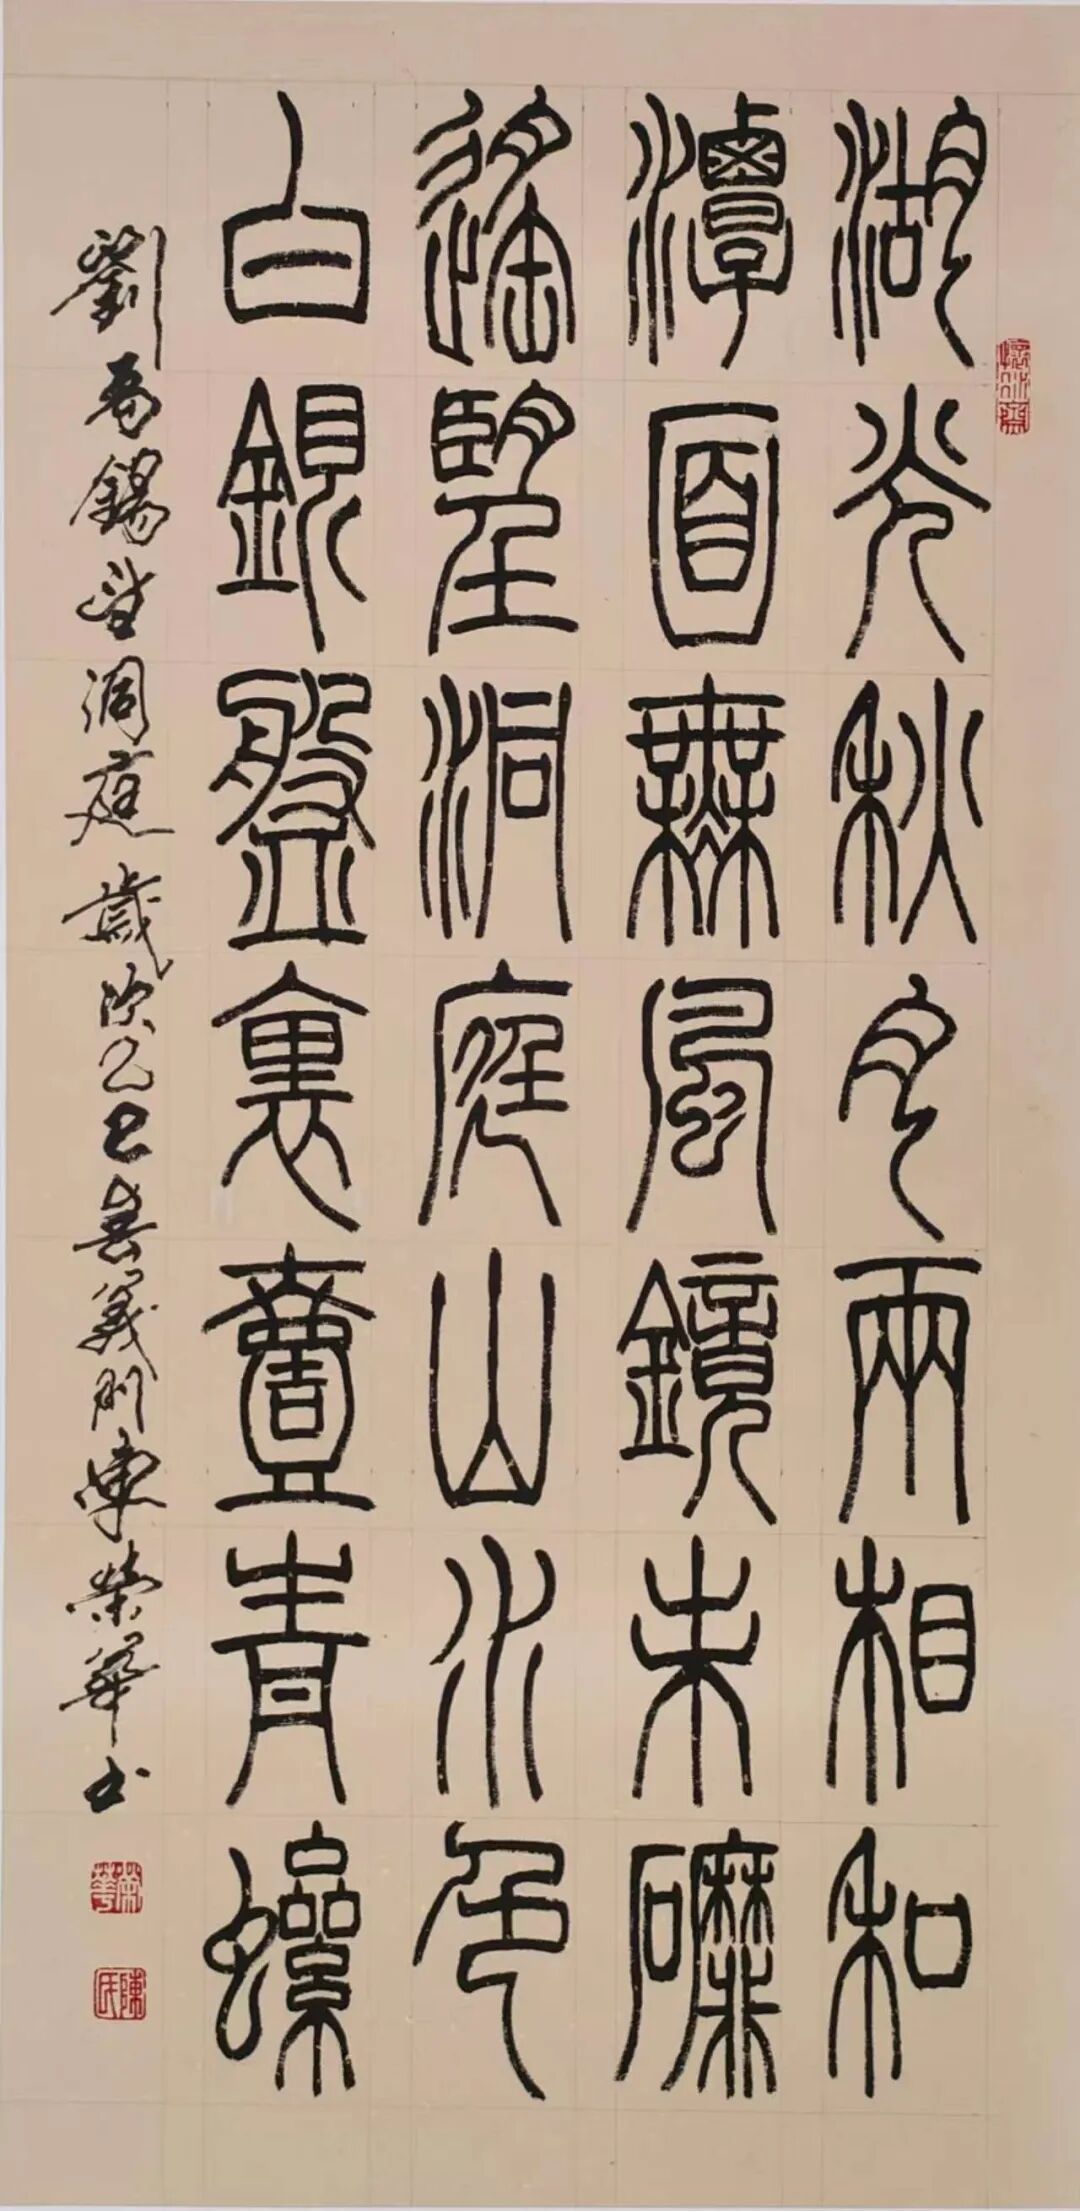 湖光秋月兩相和
潭面無風鏡未磨
遙望洞庭山水色
白銀盤裏疊青螺
劉禹錫望洞庭歲次乙巳春義門陳榮華書
榮華
陳氏